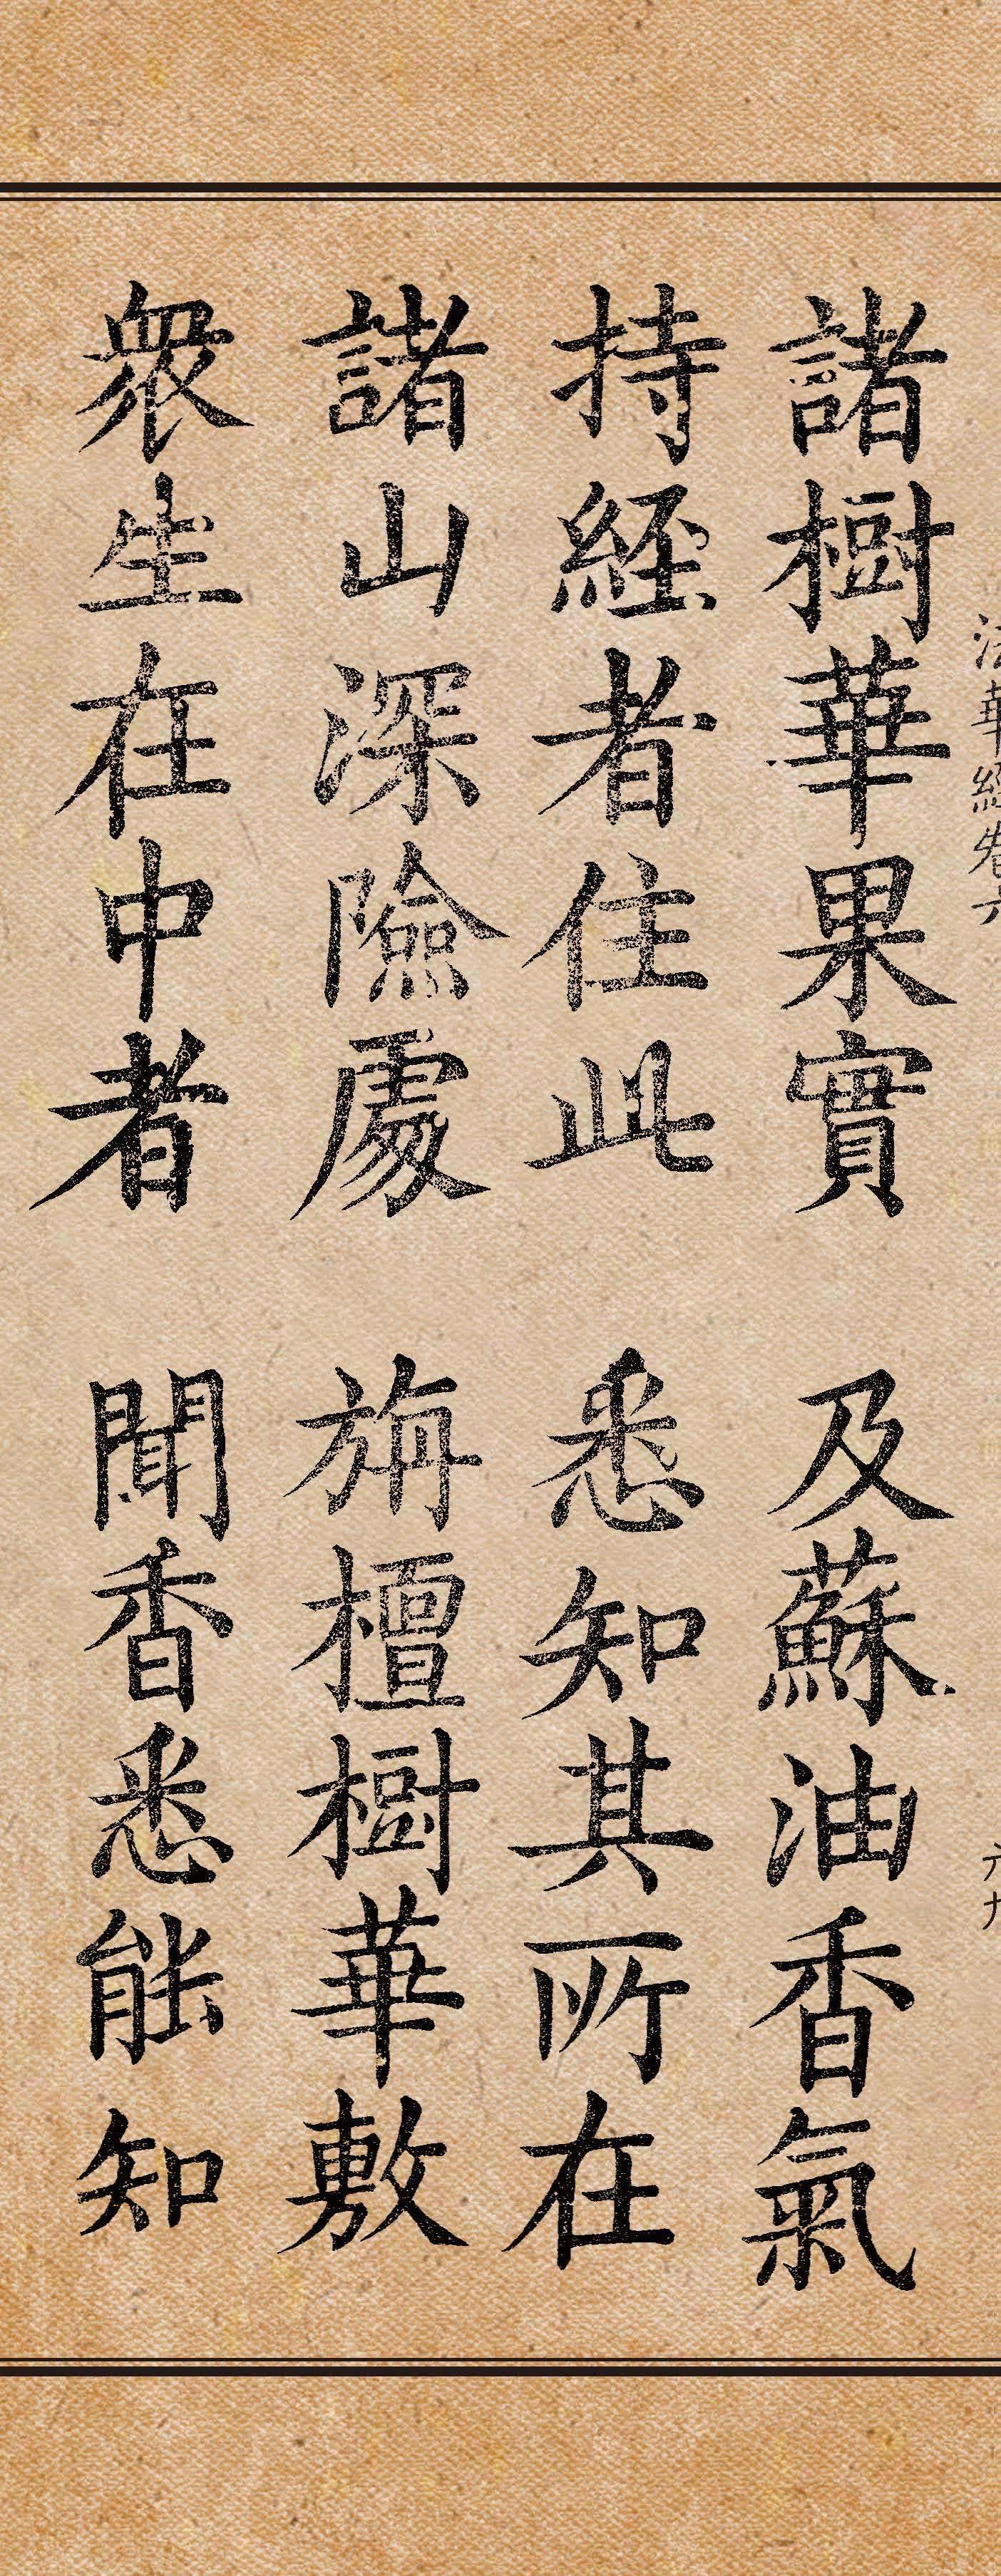 法華經卷六
六九
諸樹華果實 及蘇油香氣
持經者住此 悉知其所在
諸山深險處 旃檀樹華敷
衆生在中者 聞香悉能知